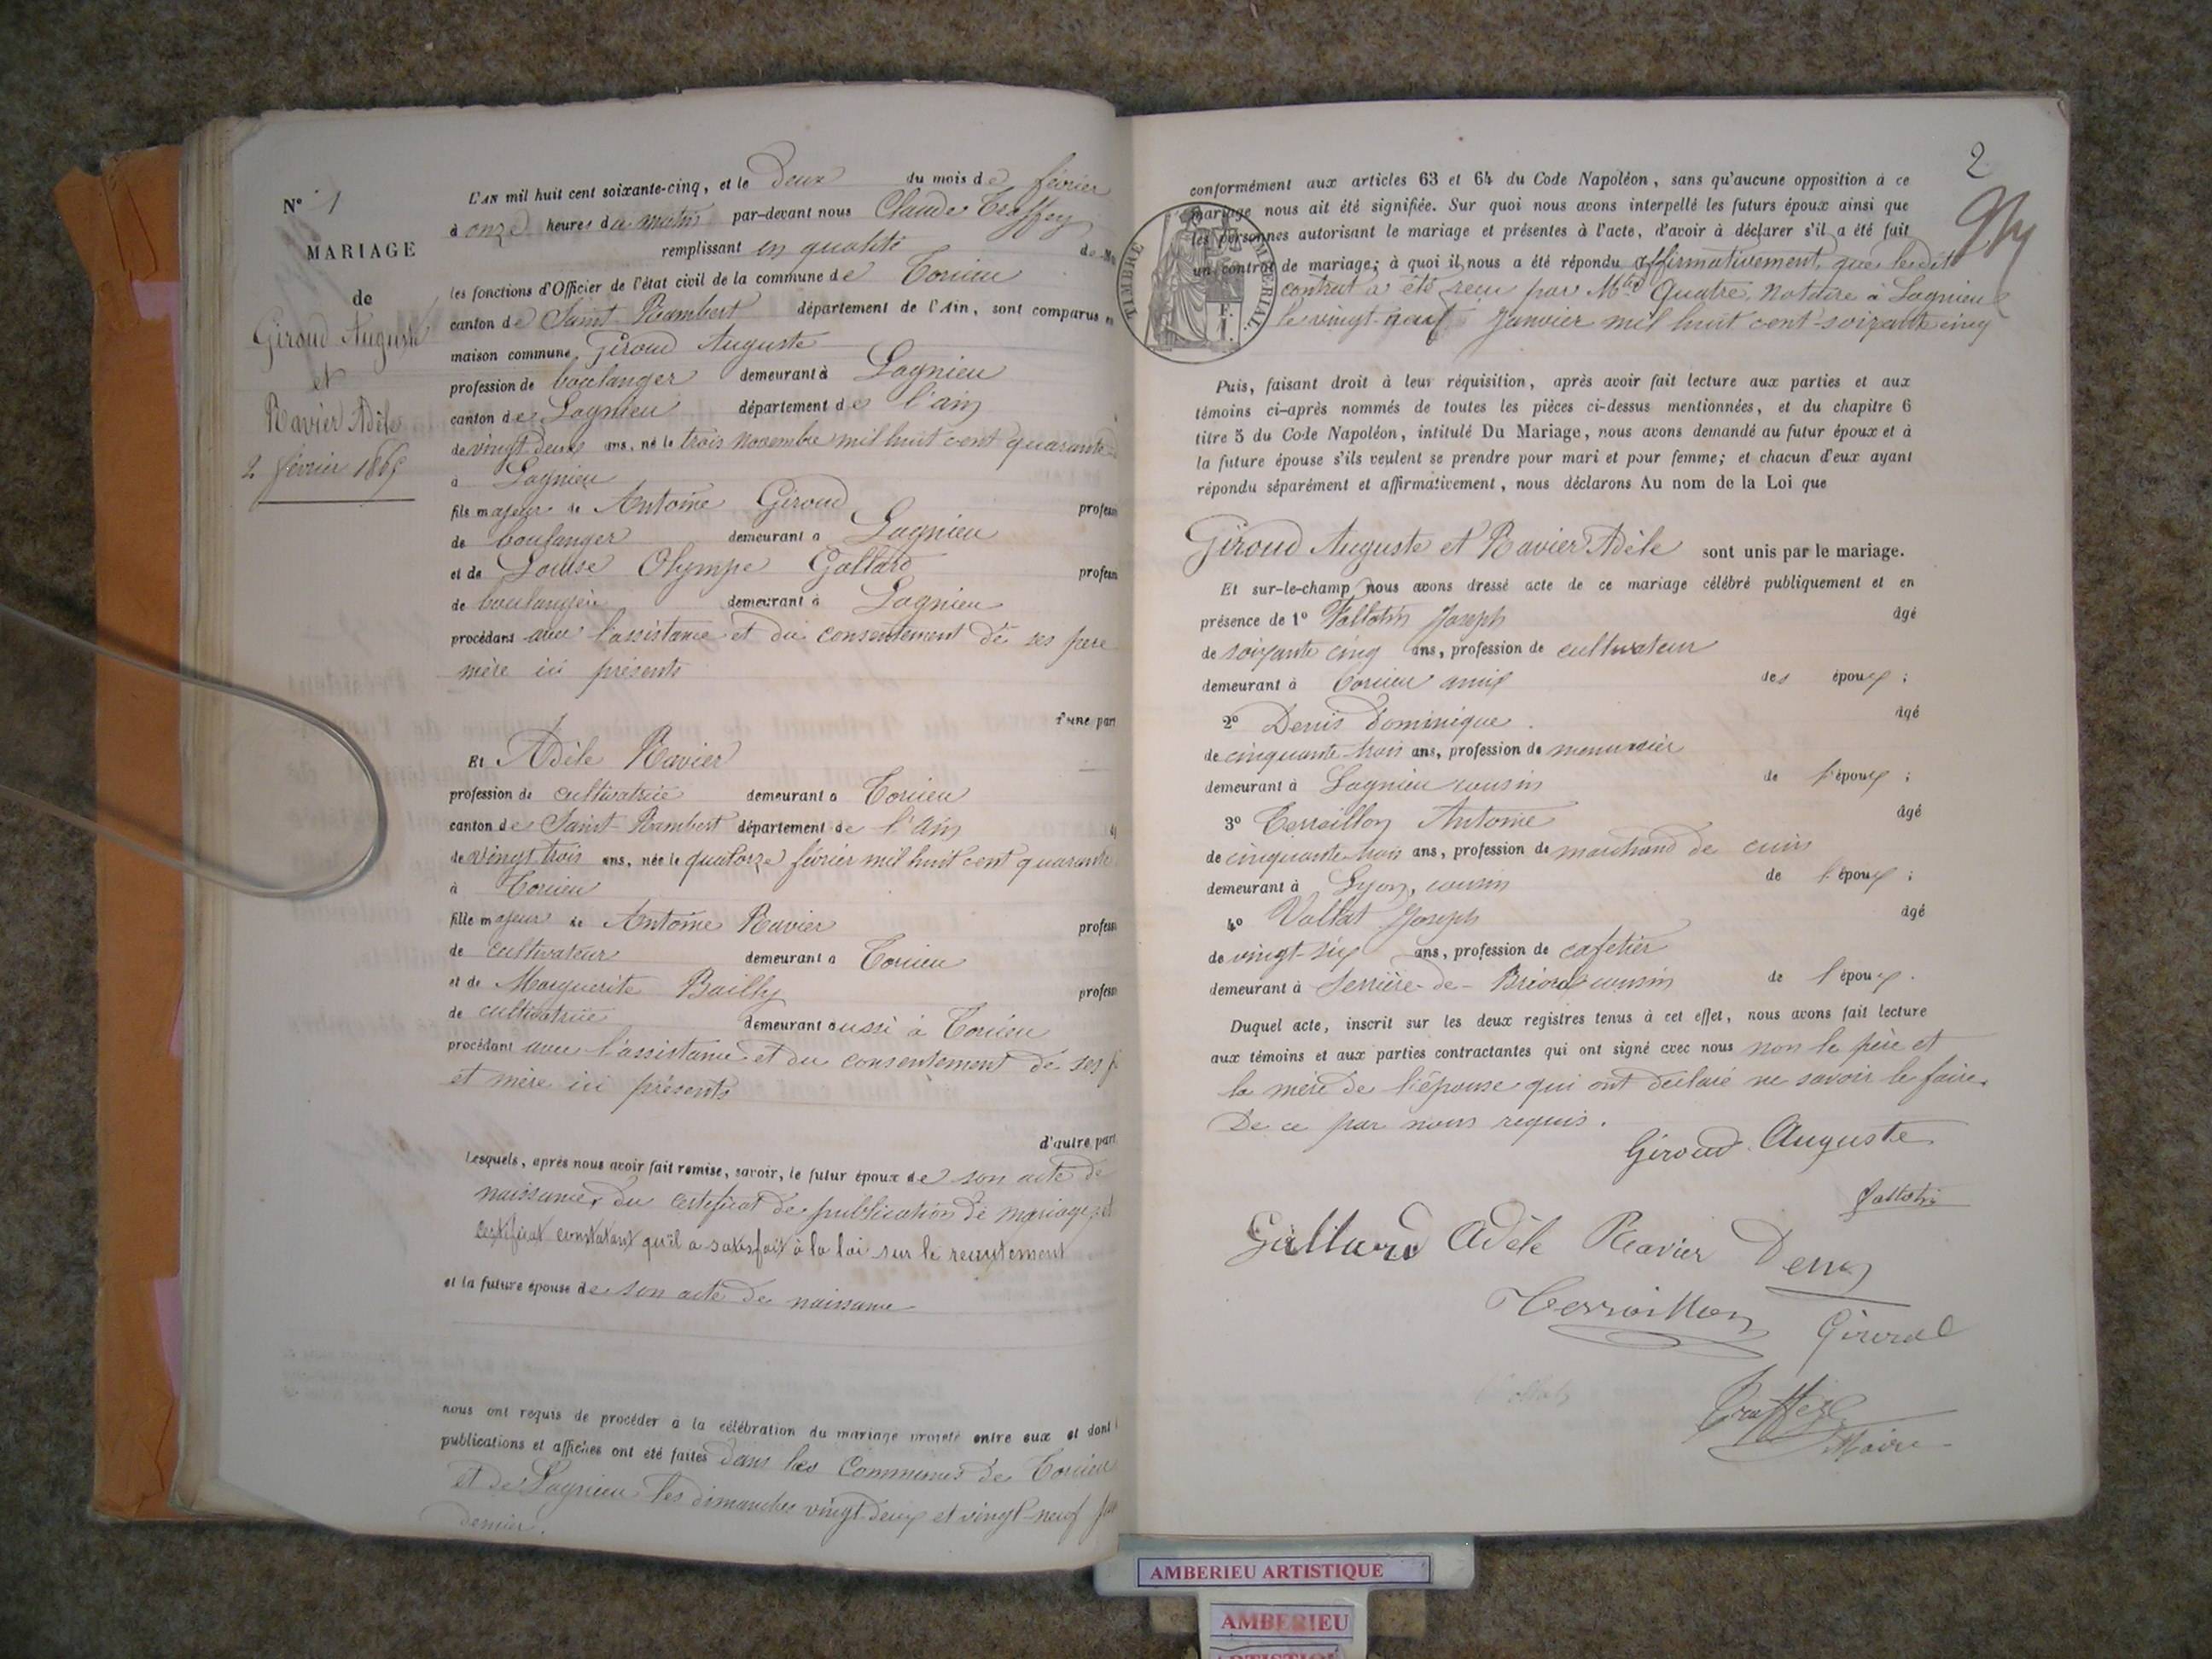 N° 1
MARIAGE
de
Giroud Auguste
et
Ravier Adèle
2 février 1865
L'AN mil huit cent soixante-cinq, et le deux du mois de février
à onze heures du matin par-devant nous Claude Traffey
remplissant en qualité de
les fonctions d'Officier de l'état civil de la commune de Torcieu
canton de Saint Rambert département de l'Ain, sont comparus en
maison commune Giroud Auguste
profession de boulanger demeurant à Lagnieu
canton de Lagnieu département de l'ain
de vingt deux ans, né le trois novembre mil huit cent quarante
à Lagnieu
fils majeur de Antoine Giroud profess
de boulanger demeurant à Lagnieu
et de Louise Olympe Gallard profess
de boulangère demeurant à Lagnieu
procédant avec l'assistance et du consentement de ses père
mère ici présents
d'une part
Et Adèle Ravier
profession de cultivatrice demeurant à Torcieu
canton de Saint-Rambert département de l'Ain
de vingt trois ans, née le quatorze février mil huit cent quarante
à Torcieu
fille majeur de Antoine Ravier profess
de cultivateur demeurant à Torcieu
et de Marguerite Bailly profess
de cultivatrice demeurant aussi à Torcieu
procédant avec l'assistance et du consentement de ses p
et mère ici présents
d'autre part
Lesquels, après nous avoir fait remise, savoir, le futur époux de son acte de
naissance, du certificat de publication de mariage, et
certificat constatant qu'il a satisfait à la loi sur le recrutement
et la future épouse de son acte de naissance
nous ont requis de procéder à la célébration du mariage projeté entre eux et dont
publications et affiches ont été faites dans les Communes de Torcieu
et de Lagnieu les dimanches vingt-deux et vingt-neuf
dernier.
2
conformément aux articles 63 et 64 du Code Napoléon, sans qu'aucune opposition à ce
mariage nous ait été signifiée. Sur quoi nous avons interpellé les futurs époux ainsi que
les personnes autorisant le mariage et présentes à l'acte, d'avoir à déclarer s'il a été fait
un contrat de mariage; à quoi il nous a été répondu affirmativement, que ledit
contrat a été reçu par Mtre Quatre, Notaire à Lagnieu
le vingt-neuf Janvier mil huit cent-soixante cinq
TIMBRE IMPERIAL.
F.
1.
Puis, faisant droit à leur réquisition, après avoir fait lecture aux parties et aux
témoins ci-après nommés de toutes les pièces ci-dessus mentionnées, et du chapitre 6
titre 5 du Code Napoléon, intitulé Du Mariage, nous avons demandé au futur époux et à
la future épouse s'ils veulent se prendre pour mari et pour femme; et chacun d'eux ayant
répondu séparément et affirmativement, nous déclarons Au nom de la Loi que
Giroud Auguste et Ravier Adèle sont unis par le mariage.
Et sur-le-champ nous avons dressé acte de ce mariage célébré publiquement et en
présence de 1° Fallotin Joseph âgé
de soixante cinq ans, profession de cultivateur
demeurant à Torcieu amis des époux ;
2° Denis Dominique. âgé
de cinquante-trois ans, profession de menuisier
demeurant à Lagnieu cousin de l'époux ;
3° Terraillon Antoine âgé
de cinquante-trois ans, profession de marchand de cuirs
demeurant à Lyon, cousin de l'époux ;
4° Vallat Joseph âgé
de vingt-six ans, profession de cafetier
demeurant à Serrière-de-Briord cousin de l'époux.
Duquel acte, inscrit sur les deux registres tenus à cet effet, nous avons fait lecture
aux témoins et aux parties contractantes qui ont signé avec nous non le père et
la mère de l'épouse qui ont déclaré ne savoir le faire.
De ce par nous requis.
Giroud Auguste
Fallotin
Gallard Adèle Ravier Denis
Terraillon Giroud
Traffey
Maire
AMBERIEU ARTISTIQUE
AMBERIEU
ARTISTIQUE